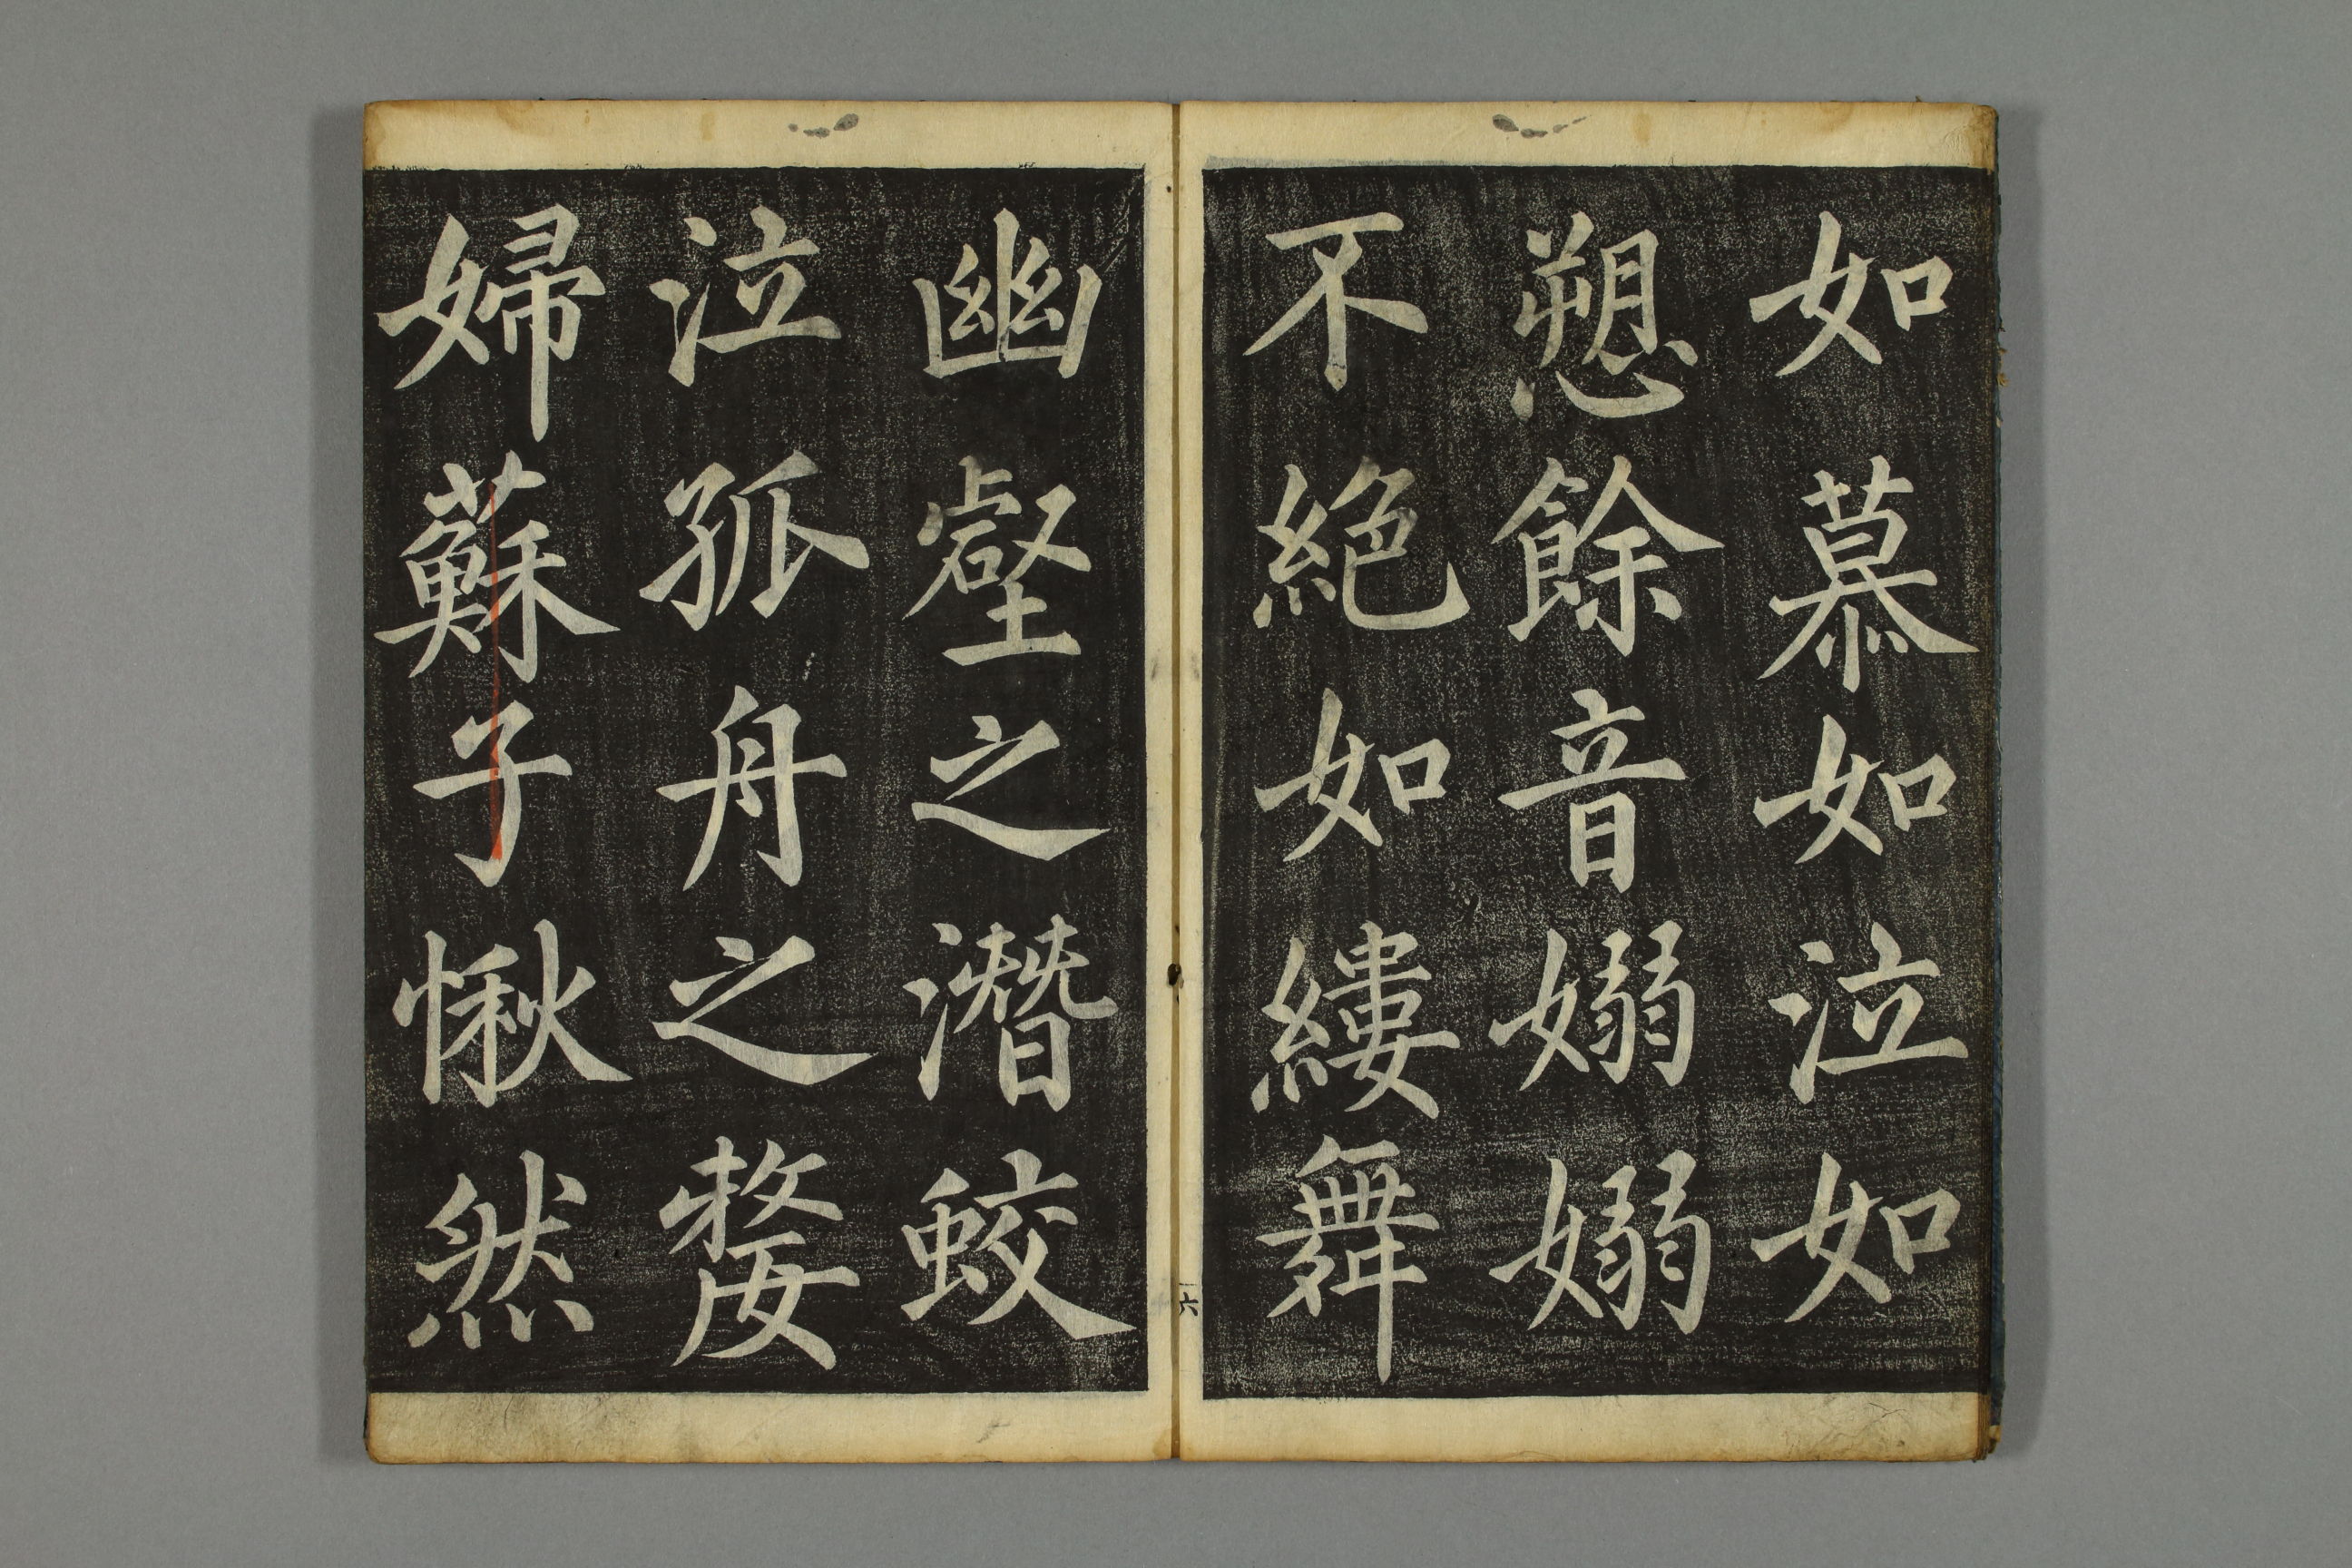 如慕如泣如
愬餘音嫋嫋
不絕如縷舞
幽壑之潛蛟
泣孤舟之嫠
婦蘇子愀然
六